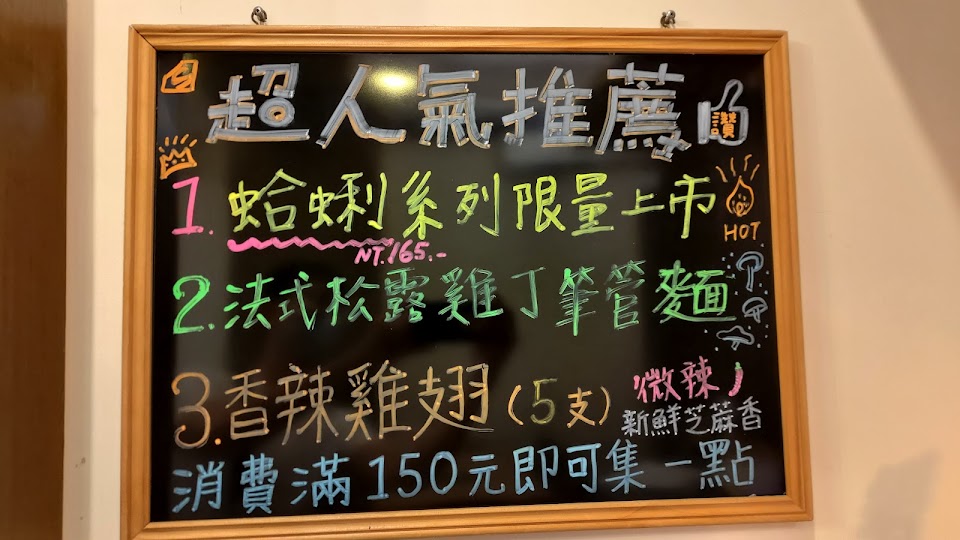 超人氣推薦 讚
1. 蛤蜊系列限量上市
HOT
NT.165.-
2. 法式松露雞丁筆管麵
3. 香辣雞翅(5支) 微辣
新鮮芝蔴香
消費滿150元即可集一點